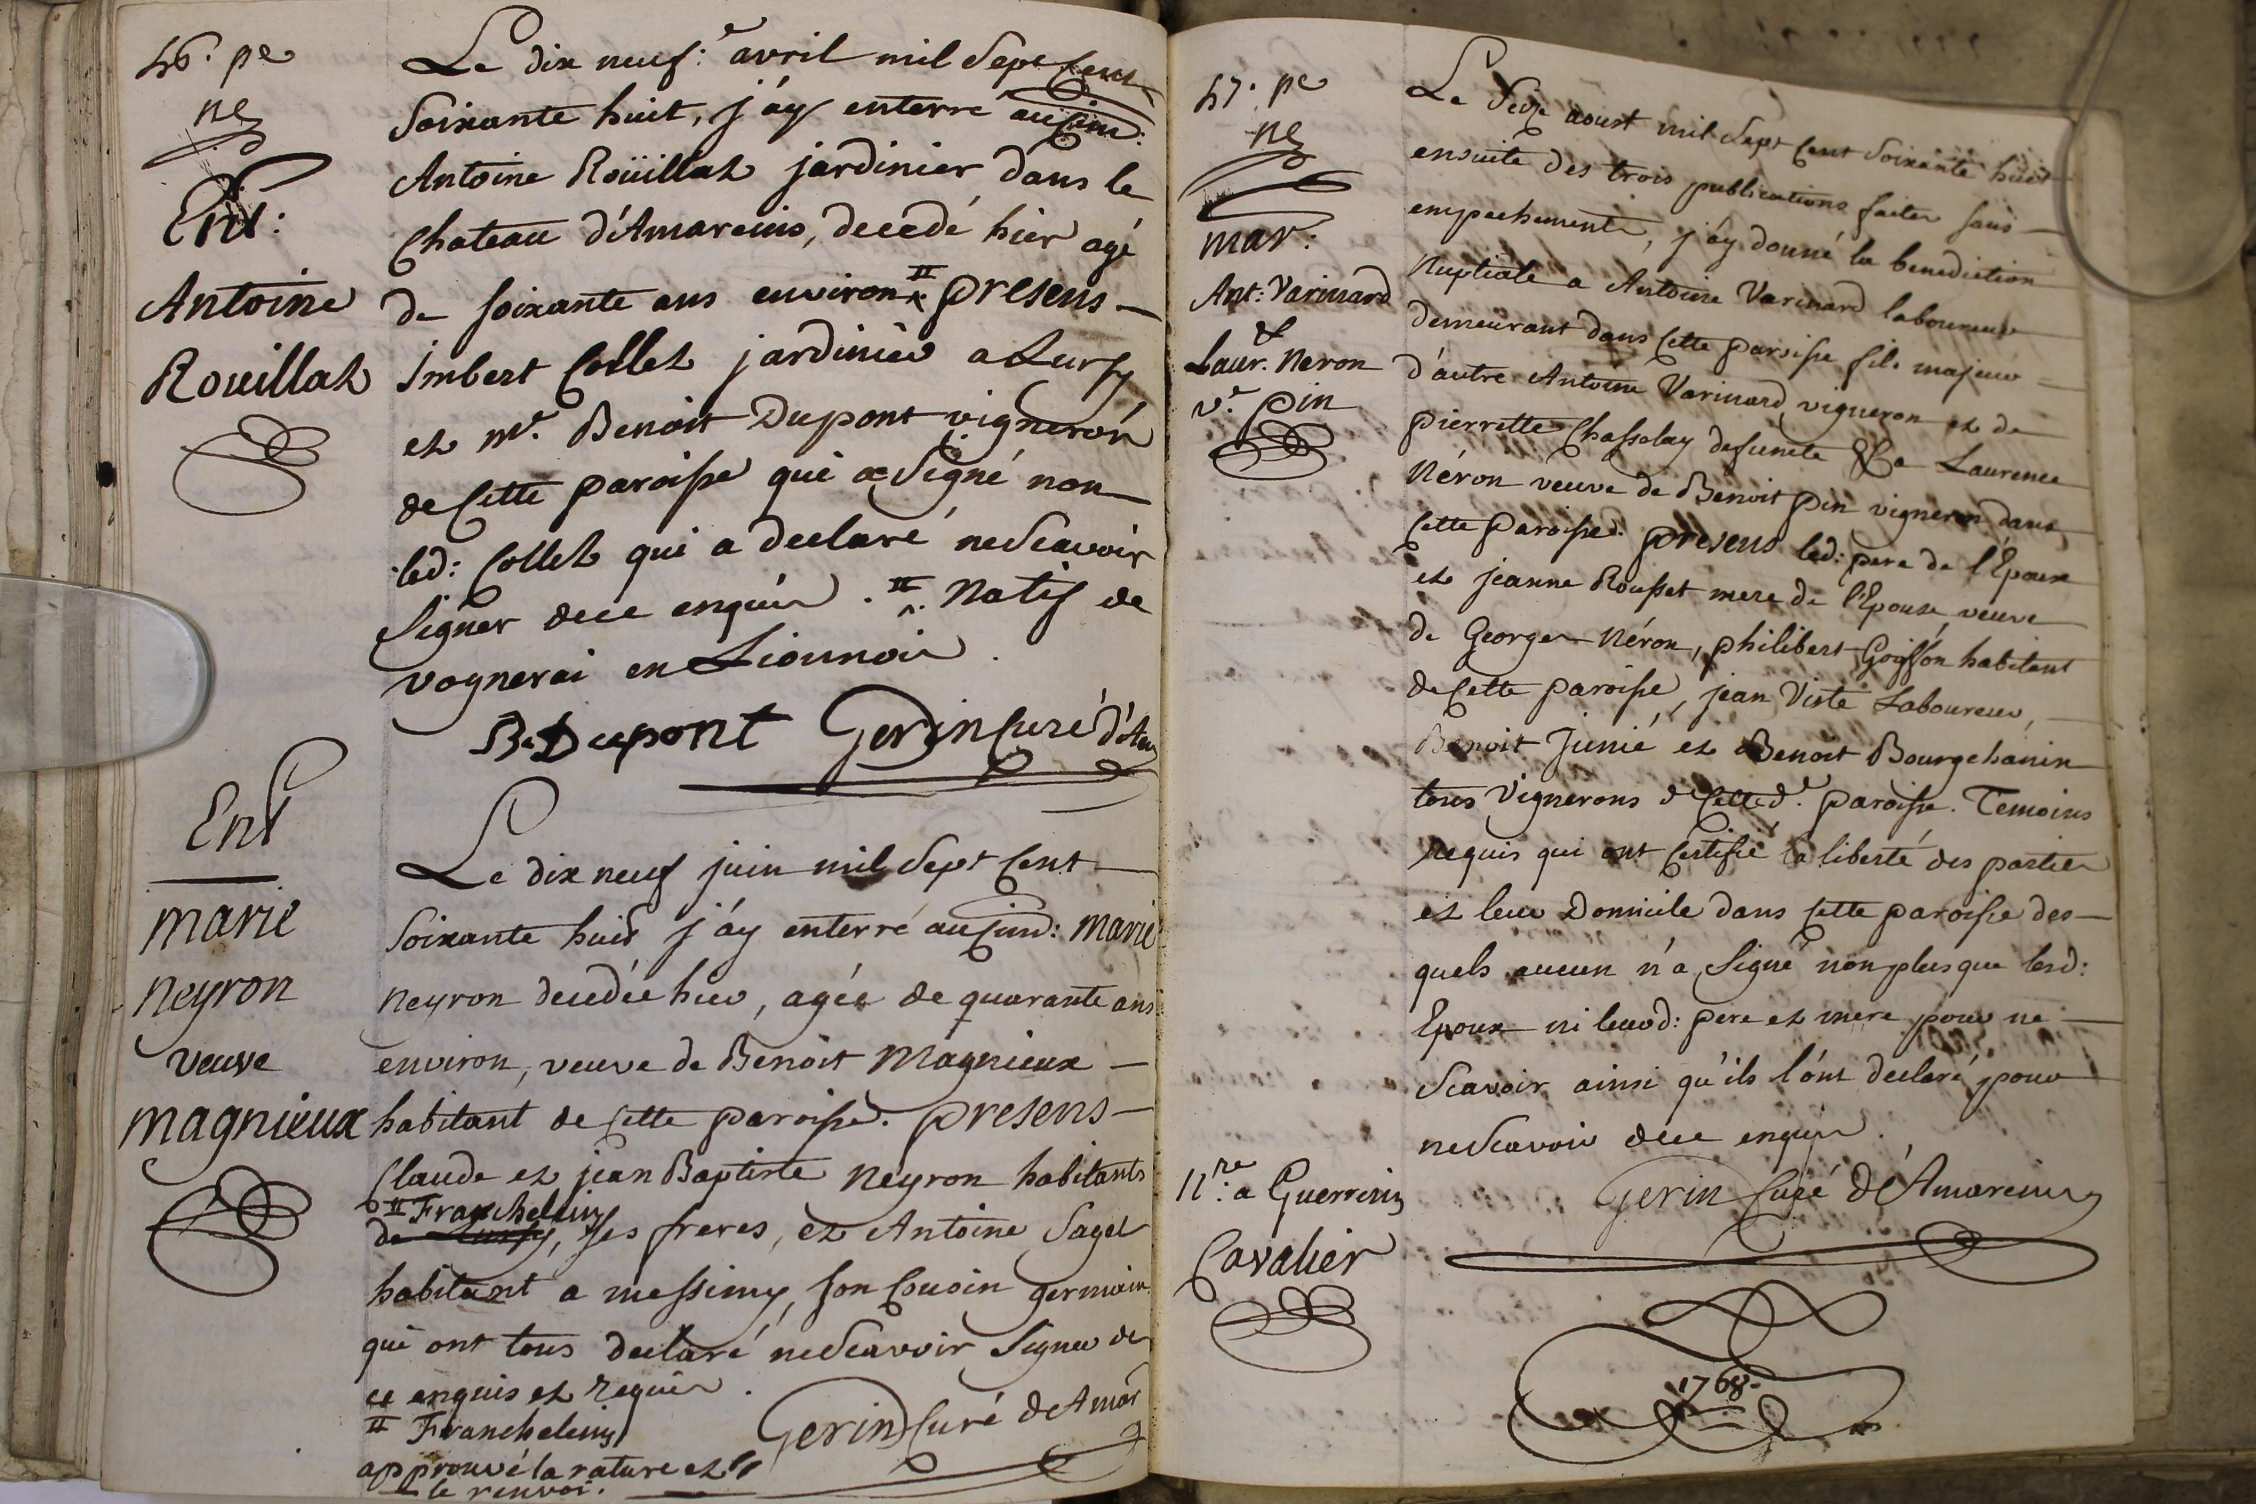 46. pe
ne
Ent:
Antoine
Rouillat
Le dix neuf:e avril mil Sept Cent
Soixante huit, j'ay enterré au Cim:
Antoine Roüillat jardinier dans le
Chateau d'Amareins, decedé hier agé
de soixante ans environ II presens
Imbert Collet jardinier a Lursy
et me. Benoit Dupont vigneron
de Cette paroisse qui a Signé non
led: Collet qui a declaré ne Scavoir
Signer de ce enquis. II Natif de
vognerai en Lionnois.
B. Dupont Gerin Curé d'Am
Ent
marie
Neyron
veuve
magnieux
Le dix neuf juin mil Sept Cent
Soixante huit j'ay enterré au Cim: Marie
Neyron decedée hier, agée de quarante ans
environ, veuve de Benoit Magnieux
habitant de Cette paroisse. presens
Claude et jean Baptiste Neyron habitants
II Franchelein
de Lursy, ses freres, et Antoine Saget
habitant a messimy, son Cousin germain
qui ont tous declaré ne Scavoir Signer de
ce enquis et requis.
II Franchelein
approuvé la rature et
le renvoi.
Gerin Curé d'Amar
47. pe
ne
mar:
Ant: Varinard
&
Laur. Neron
ve. pin
Le Seize aoust mil Sept Cent Soixante huit
ensuite des trois publications faites sans
empechements, j'ay donné la benediction
Nuptiale a Antoine Varinard laboureur
demeurant dans Cette paroisse fils majeur
d'autre Antoine Varinard vigneron et de
pierrette Chassolay defuncte & a Laurence
Néron veuve de Benoit pin vigneron dans
Cette paroisse. presens led: pere de l'Epoux
et jeanne Rousset mere de l'Epouse, veuve
de George Néron, philibert Goiffon habitant
de Cette paroisse, jean Viste Laboureur,
Benoit Junié et Benoit Bourgchanin
tous Vignerons de Cetted.e paroisse. Temoins
requis qui ont Certifié la liberté des parties
et leur Domicile dans Cette paroisse des
quels aucun n'a Signé non plus que lesd:
Epoux ni leursd: pere et mere pour ne
Scavoir ainsi qu'ils l'ont declaré pour
ne Scavoir de ce enquis.
Gerin Curé d'Amareins
a Guerreins
Cavalier
1768.